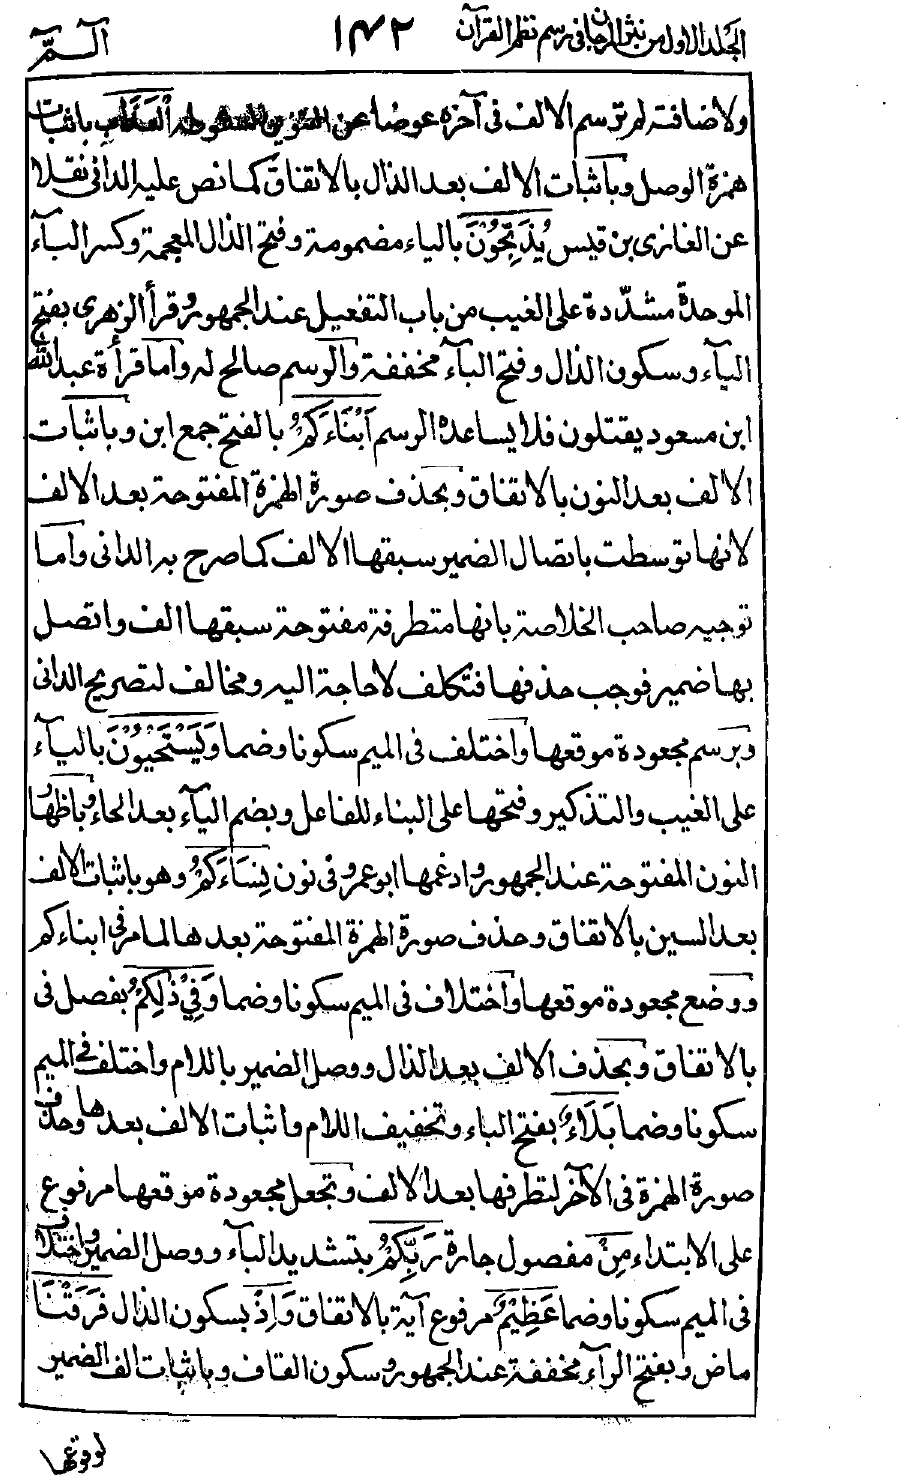 الجلد الاول من نثر المرجان فى رسم نظم القرآن ١٤٢ الٓـمّٓ
ولاضافته لم ترسم الالف فى آخره عوضا عن التنوين المفتوحة الْعَذَابِ باثبات
همزة الوصل وباثبات الالف بعد الذال بالاتفاق كما نص عليه الدانى نقلا
عن الغازى بن قيس يُذَبِّحُوْنَ بالياء مضمومة وفتح الذال المعجمة وكسر البآء
الموحدة مشدّدة على الغيب من باب التفعيل عند الجمهور وقرأ الزهرى بفتح
اليآء وسكون الذال وفتح البآء مخففة والرسم صالح له واما قرأة عبد الله
ابن مسعود يقتلون فلا يساعده الرسم اَبْنَاءَكُمْ بالفتح جمع ابن وباثبات
الالف بعد النون بالاتفاق وبحذف صورة الهمزة المفتوحة بعد الالف
لانها توسطت باتصال الضمير سبقها الالف كما صرح به الدانى واما
توجيه صاحب الخلاصة بانها متطرفة مفتوحة سبقها الف واتصل
بها ضمير فوجب حذفها فتكلف لا حاجة اليه ومخالف لتصريح الدانى
وبرسم مجعودة موقعها واختلف فى الميم سكونا وضما وَيَسْتَحْيُوْنَ باليآء
على الغيب والتذكير وفتحها على البناء للفاعل وبضم اليآء بعد الحاء وباظهار
النون المفتوحة عند الجمهور وادغمها ابو عمرو فى نون نِسَاءَكُمْ وهو باثبات الالف
بعد السين بالاتفاق وحذف صورة الهمزة المفتوحة بعدها لما مر فى ابناءكم
ووضع مجعودة موقعها واختلاف فى الميم سكونا وضما وَفِيْ ذٰلِكُمْ بفصل فى
بالاتفاق وبحذف الالف بعد الذال ووصل الضمير باللام واختلف فى الميم
سكونا وضما بَلَاءٌ بفتح الباء وتخفيف اللام واثبات الالف بعدها وحذف
صورة الهمزة فى الآخر لتطرفها بعد الالف وتجعل مجعودة موقعها مرفوع
على الابتداء مِنْ مفصول جارة رَبِّكُمْ بتشديد البآء ووصل الضمير واختلاف
فى الميم سكونا وضما عَظِيْمٌ مرفوع آية بالاتفاق وَاِذْ بسكون الذال فَرَقْنَا
ماض وبفتح الرآء مخففة عند الجمهور وسكون القاف وباثبات الف الضمير
لوقوعها